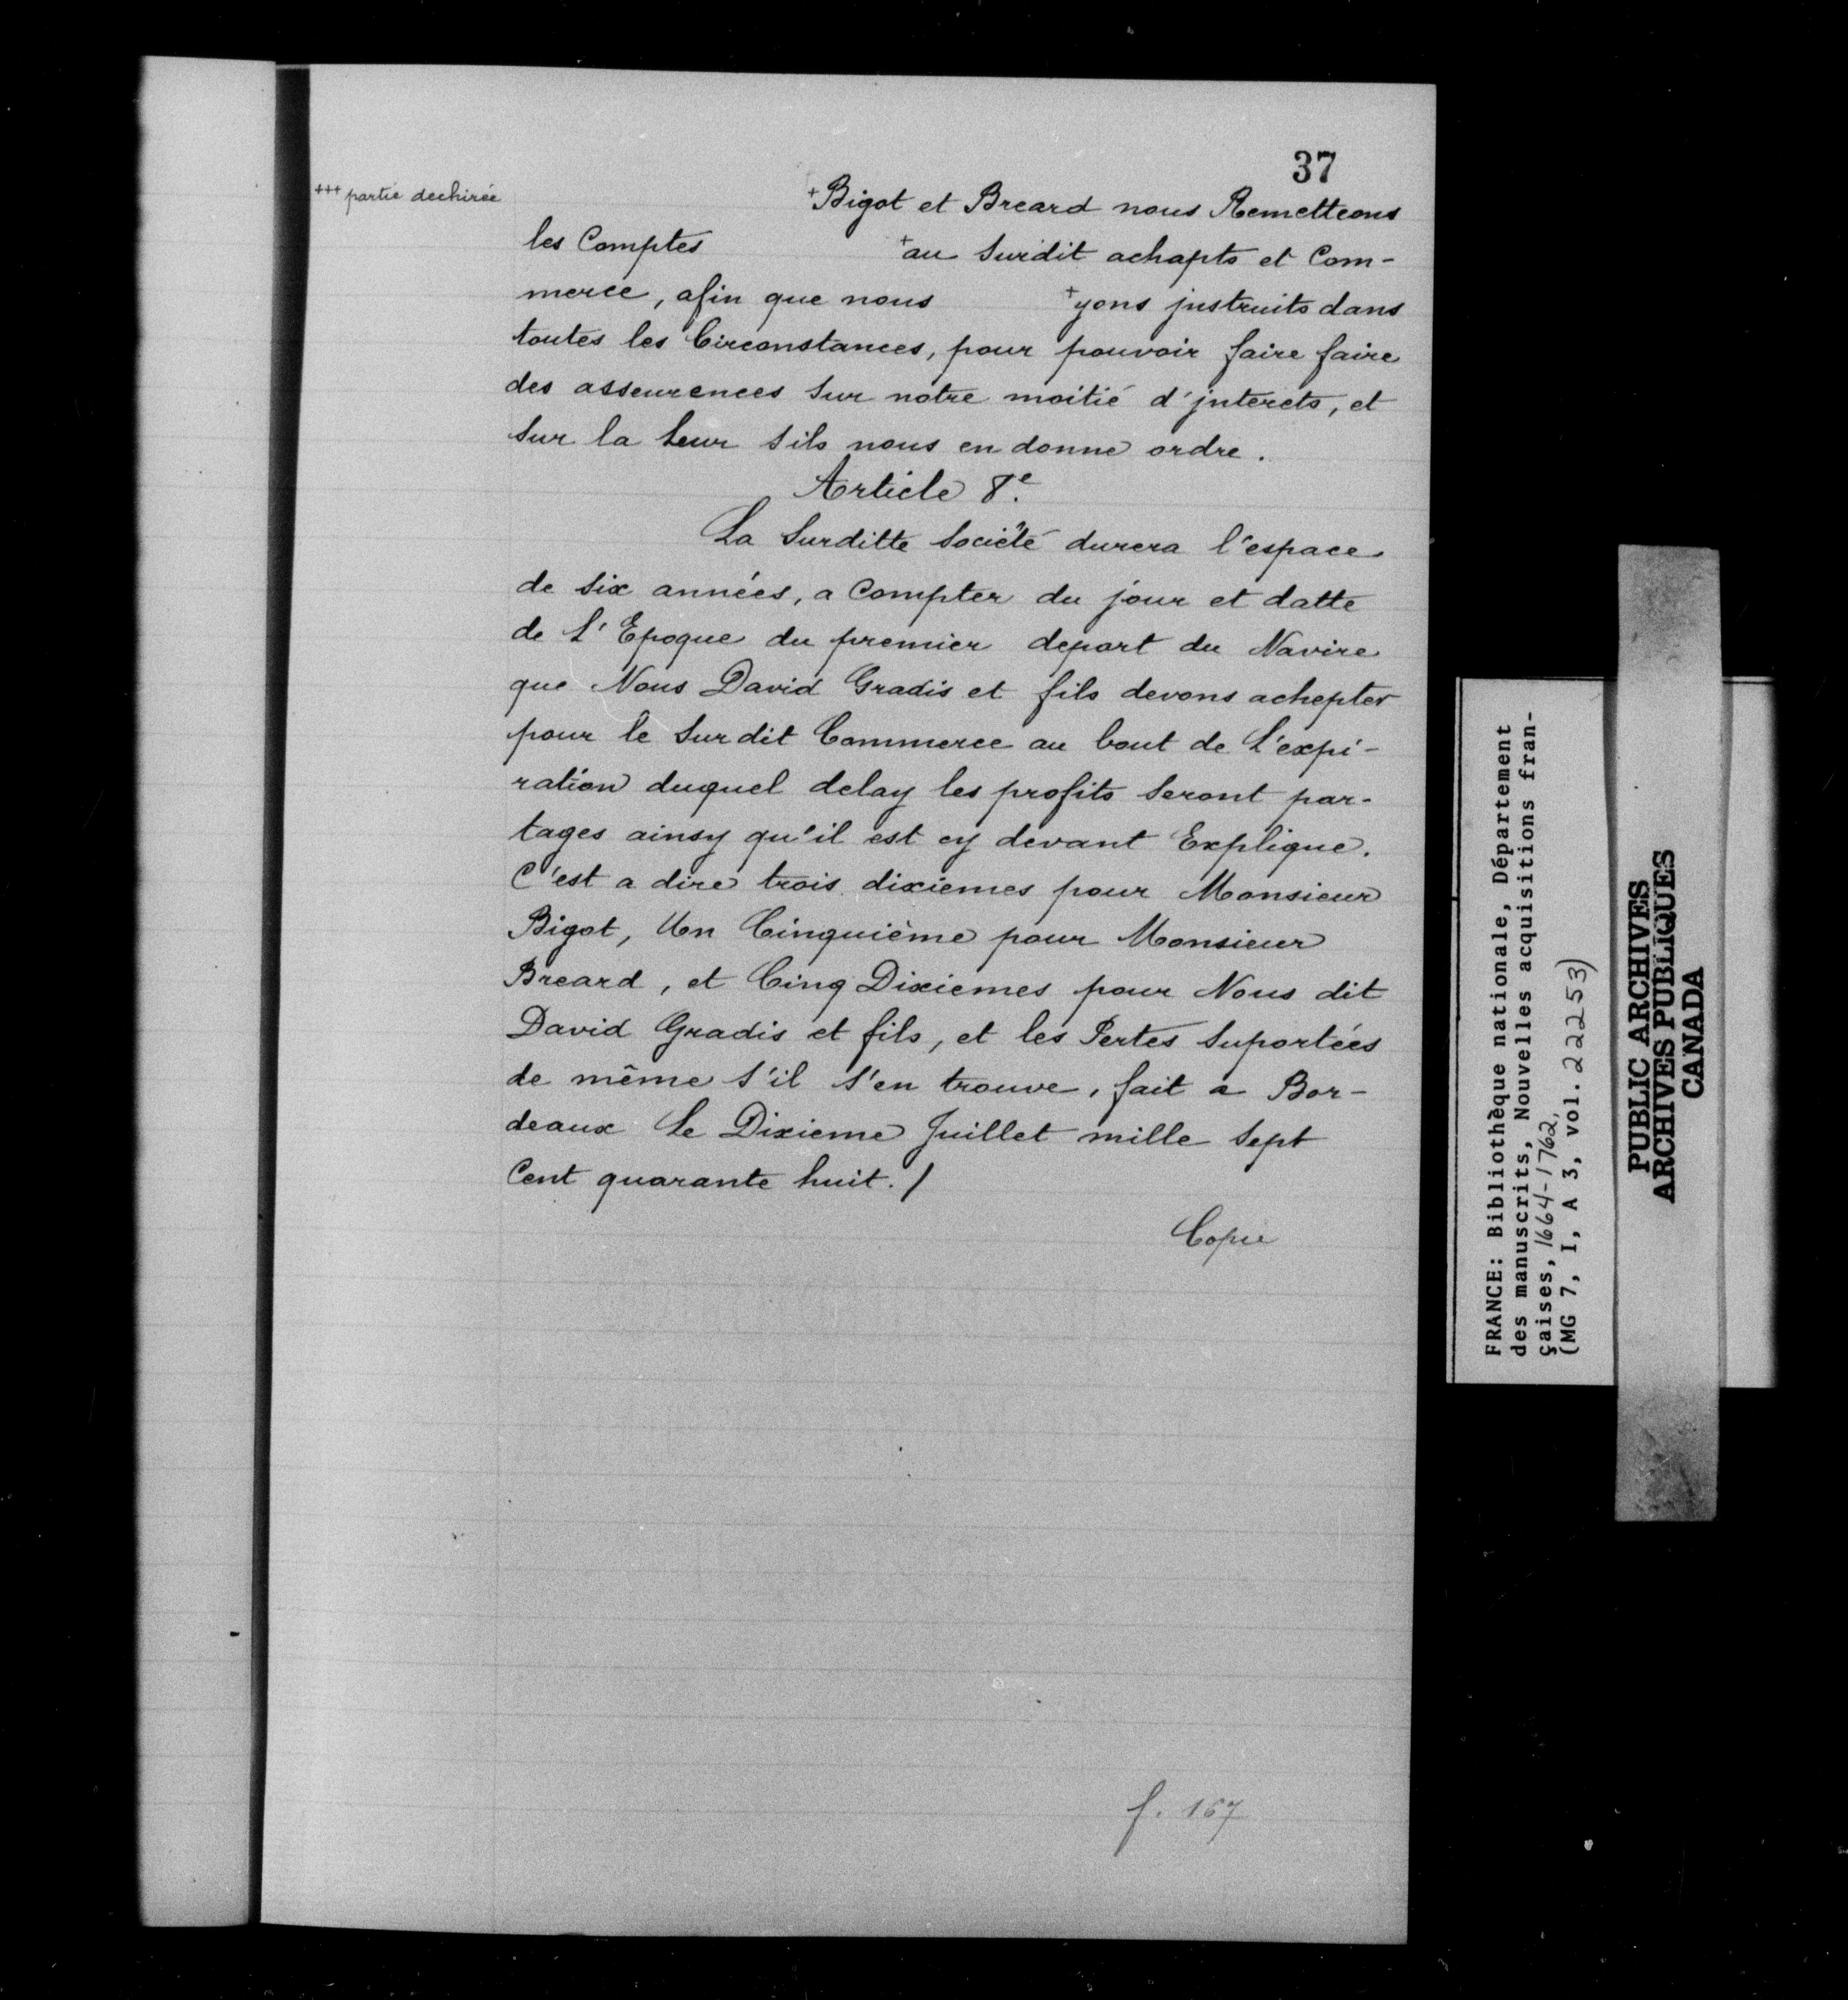 37
+++ partie dechirée
+Bigot et Breard nous Remetteons
les Comptes +au Surdit achapts et Com-
merce, afin que nous +yons justruits dans
toutes les Circonstances, pour pouvoir faire faire
des asseurences Sur notre moitié d'jnterets, et
Sur la Leur Sils nous en donne ordre.
Article 8e.
La Surditte Société durera l'espace
de Six années, a Compter du jour et datte
de L'Epoque du premier depart du Navire
que Nous David Gradis et fils devons achepter
pour le Surdit Commerce au bout de L'expi-
ration duquel delay les profits Seront par-
tages ainsy qu'il est cy devant Explique.
C'est a dire trois dixiemes pour Monsieur
Bigot, Un Cinquième pour Monsieur
Breard, et Cinq Dixiemes pour Nous dit
David Gradis et fils, et les Pertes Suportées
de même S'il S'en trouve, fait a Bor-
deaux Le Dixieme Juillet mille Sept
Cent quarante huit./
Copie
f. 167
FRANCE: Bibliothèque nationale, Département
des manuscrits, Nouvelles acquisitions fran-
çaises, 1664-1762,
(MG 7, I, A 3, vol. 22253)
PUBLIC ARCHIVES
ARCHIVES PUBLIQUES
CANADA